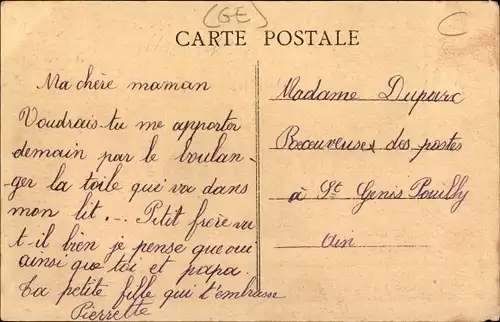 (GE)
C
CARTE POSTALE
Ma chère maman
Voudrais-tu me apporter
demain par le boulan-
ger la toile qui va dans
mon lit... Petit frère va
t-il bien je pense que oui
ainsi que toi et papa.
ta petite fille qui t'embrasse
Pierrette
Madame Duparc
Receveuse des postes
à St Genis Pouilly
Ain